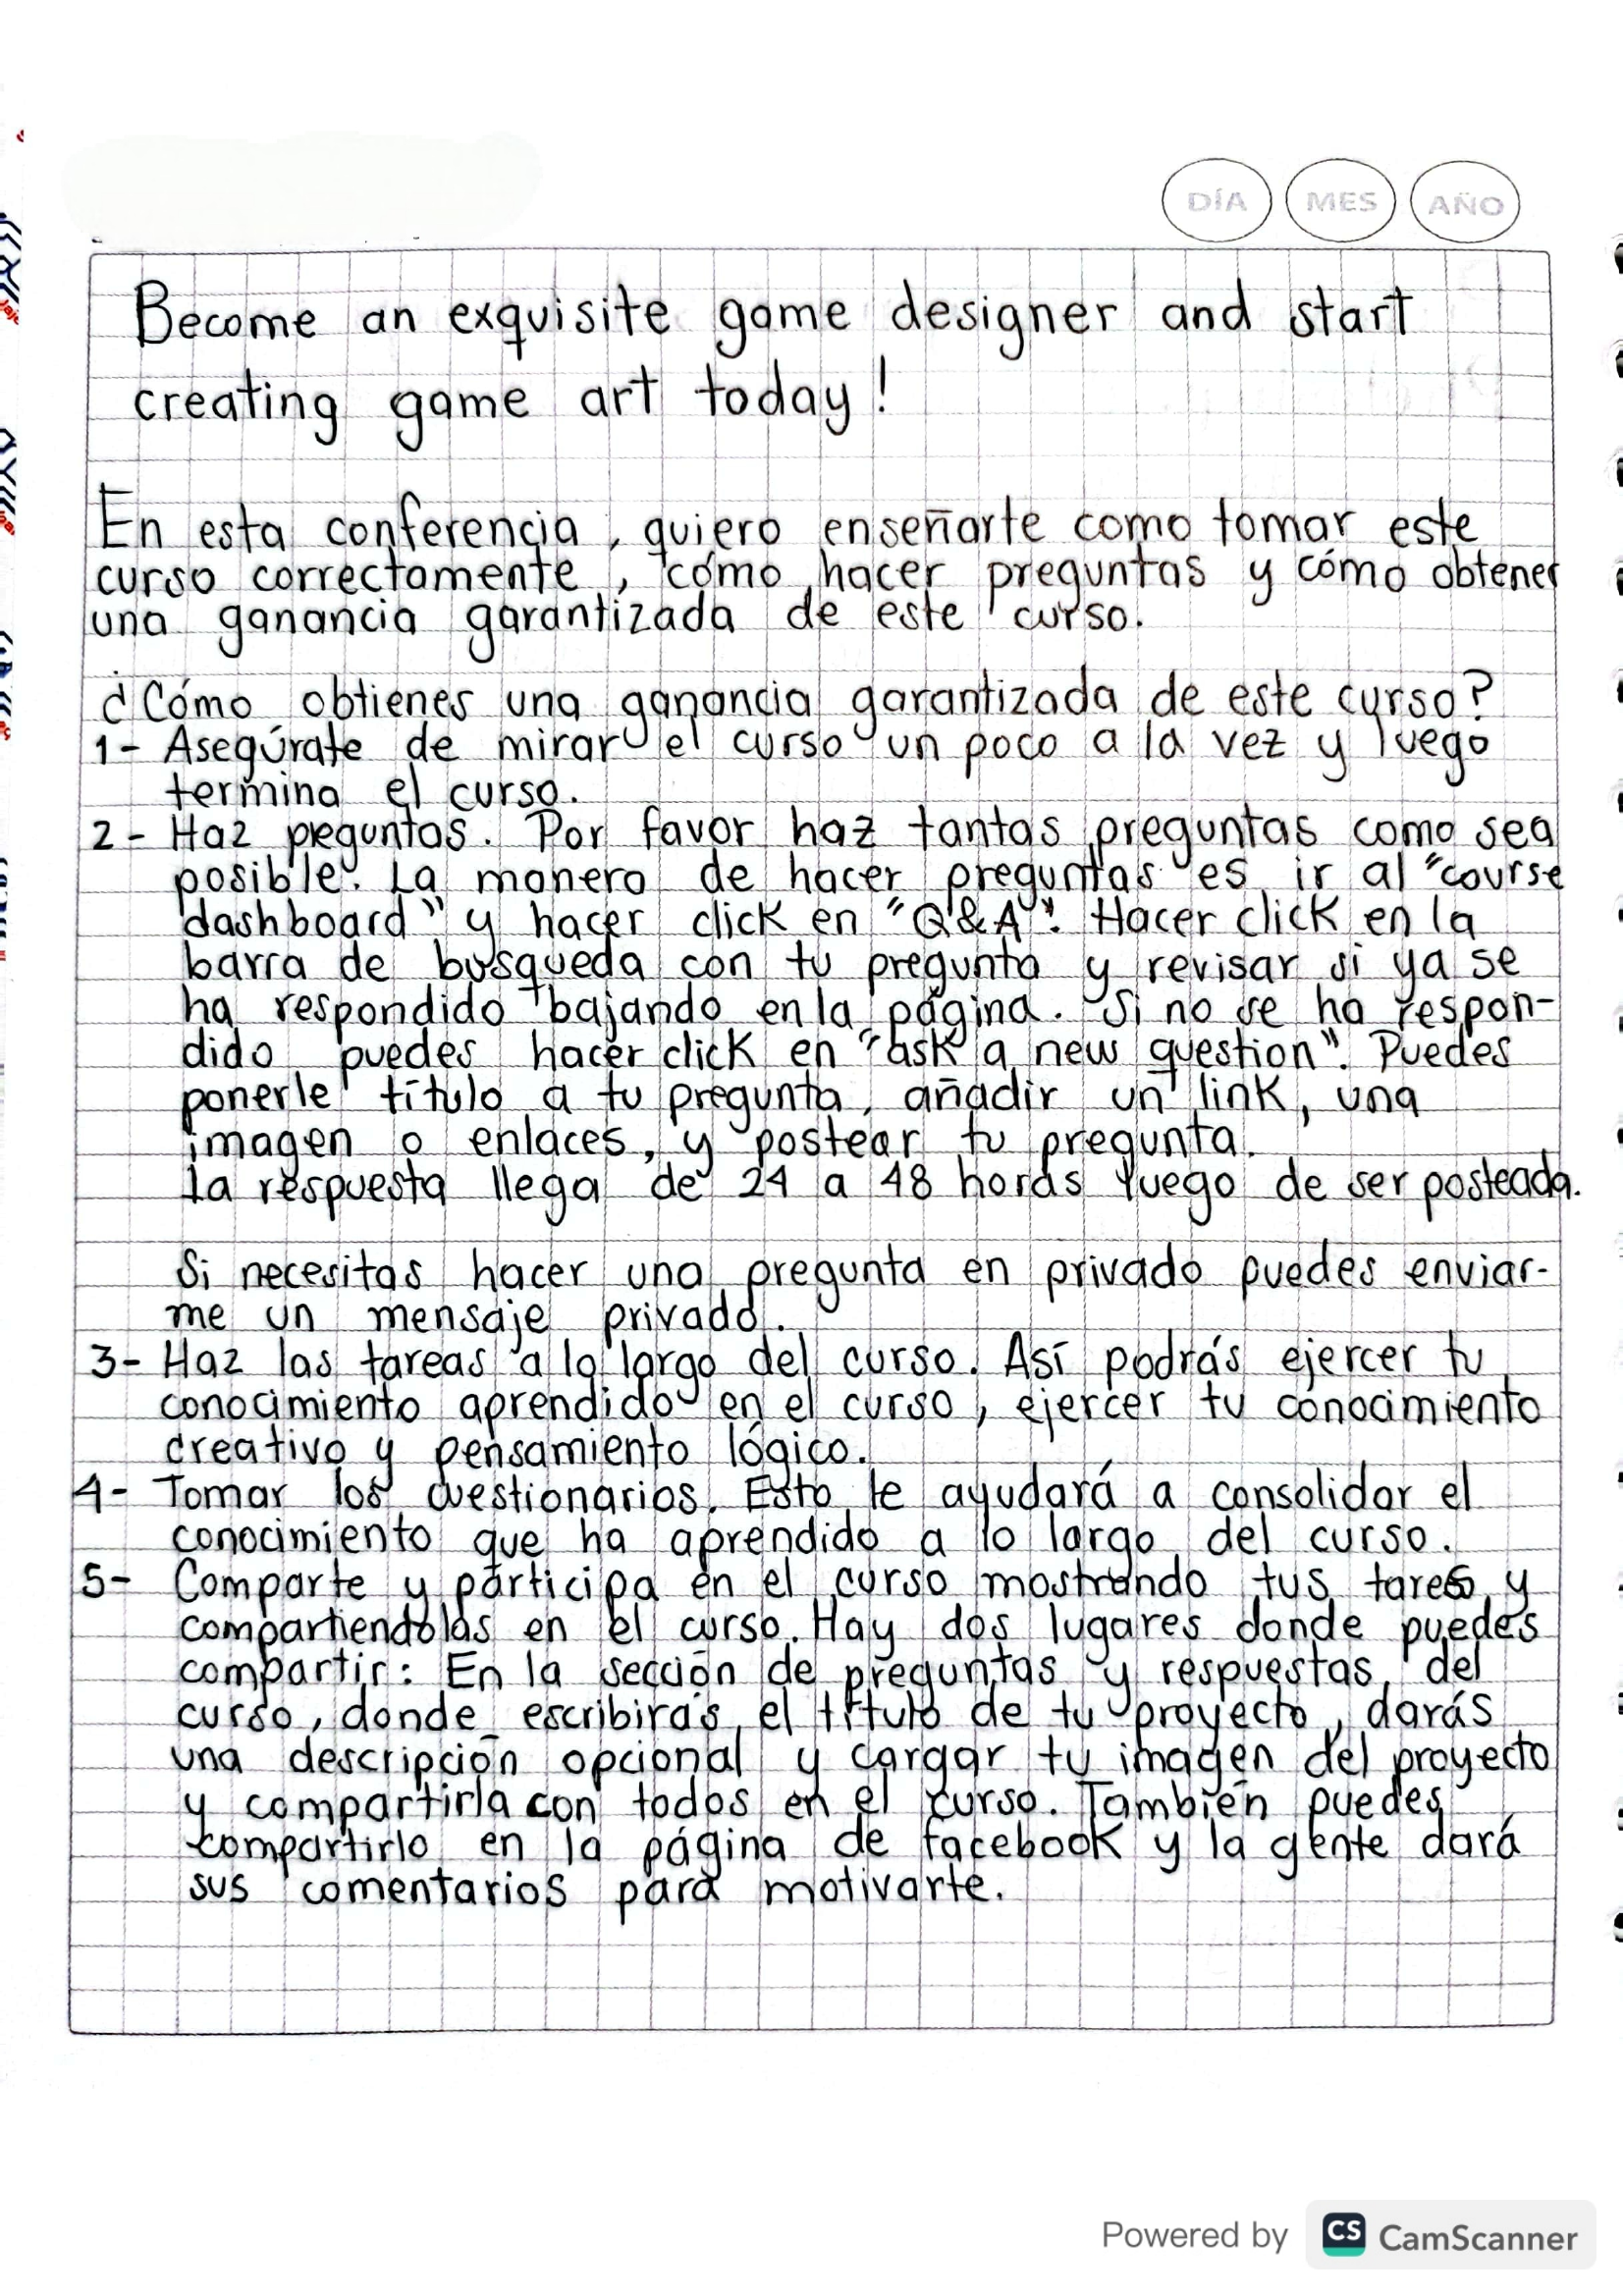 DÍA MES AÑO
Become an exquisite game designer and start
creating game art today!
En esta conferencia, quiero enseñarte como tomar este
curso correctamente, cómo hacer preguntas y cómo obtener
una ganancia garantizada de este curso.
¿Cómo obtienes una ganancia garantizada de este curso?
1- Asegúrate de mirar el curso un poco a la vez y luego
termina el curso.
2- Haz preguntas. Por favor haz tantas preguntas como sea
posible. La manera de hacer preguntas es ir al "course
dashboard" y hacer click en "Q&A". Hacer click en la
barra de busqueda con tu pregunta y revisar si ya se
ha respondido bajando en la página. Si no se ha respon-
dido puedes hacer click en "ask a new question". Puedes
ponerle título a tu pregunta, añadir un link, una
imagen o enlaces, y postear tu pregunta.
La respuesta llega de 24 a 48 horas luego de ser posteada.
Si necesitas hacer una pregunta en privado puedes enviar-
me un mensaje privado.
3- Haz las tareas a lo largo del curso. Así podrás ejercer tu
conocimiento aprendido en el curso, ejercer tu conocimiento
creativo y pensamiento lógico.
4- Tomar los cuestionarios. Esto le ayudará a consolidar el
conocimiento que ha aprendido a lo largo del curso.
5- Comparte y participa en el curso mostrando tus tareas y
compartiendolas en el curso. Hay dos lugares donde puedes
compartir: En la sección de preguntas y respuestas del
curso, donde escribirás el título de tu proyecto, darás
una descripción opcional y cargar tu imagen del proyecto
y compartirla con todos en el curso. También puedes
compartirlo en la página de facebook y la gente dará
sus comentarios para motivarte.
Powered by CS CamScanner